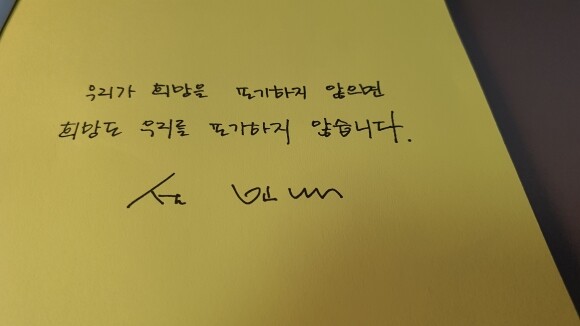 우리가 희망을 포기하지 않으면
희망도 우리를 포기하지 않습니다.